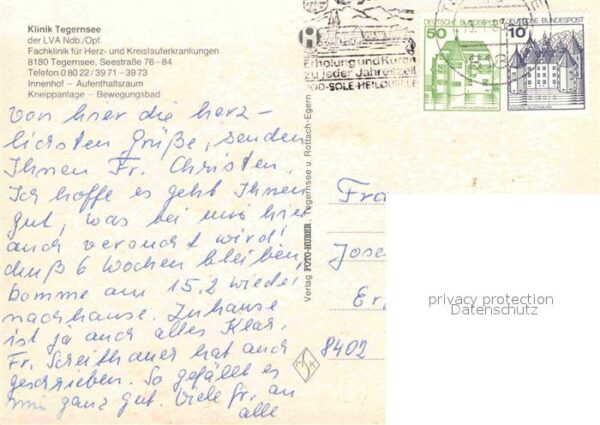 Klinik Tegernsee
der LVA Ndb./Opf.
Fachklinik für Herz- und Kreislauferkrankungen
8180 Tegernsee, Seestraße 76-84
Telefon 0 80 22 / 39 71 - 39 73
Innenhof - Aufenthaltsraum
Kneippanlage - Bewegungsbad
Erholung und Kuren
zu jeder Jahreszeit
JOD-SOLE-HEILQUELLE
50 DEUTSCHE BUNDESPOST
10 DEUTSCHE BUNDESPOST
Von hier die herz-
lichsten Grüße, senden
Ihnen Fr. Christen.
Ich hoffe es geht Ihnen
gut, was bei uns hier
auch versucht wird!
muß 6 Wochen bleiben,
komme am 15.2 wieder
nachhause. Zuhause
ist ja auch alles klar,
Fr. Scheithauer hat auch
geschrieben. So gefällt es
mir ganz gut. Viele Gr. an
alle
Verlag FOTO-HUBER, Tegernsee u. Rottach-Egern
Fra
Jose
Er
8402
privacy protection
Datenschutz